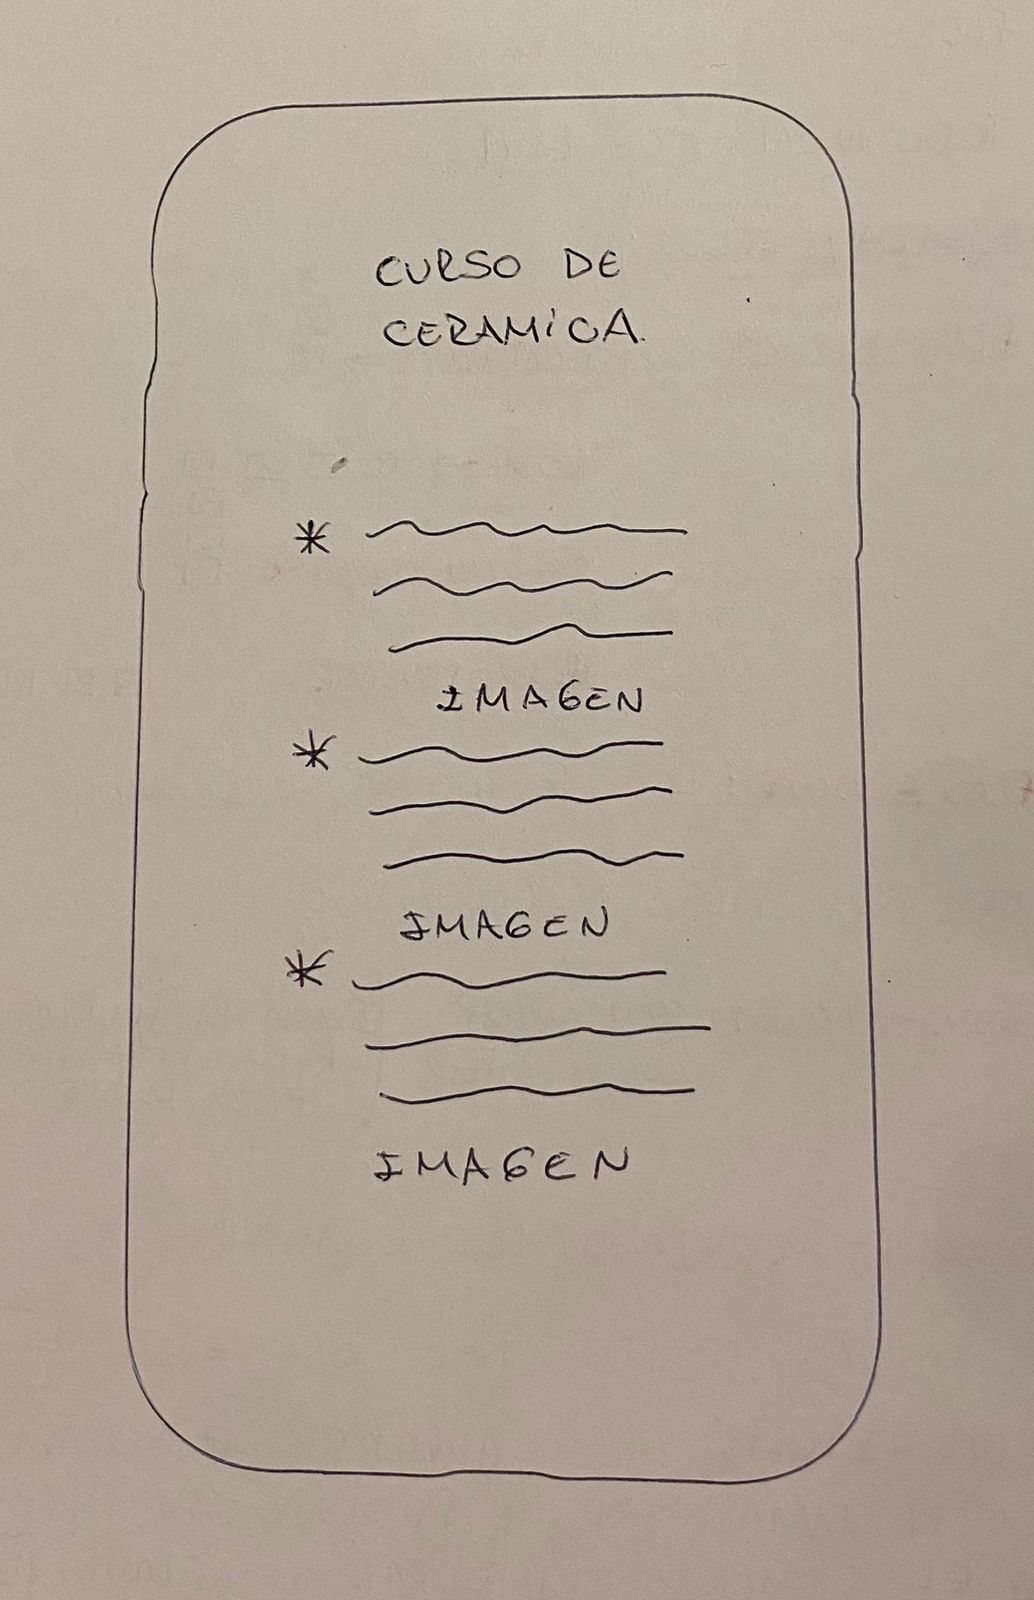 CURSO DE
CERAMICA.
* 
IMAGEN
* 
IMAGEN
* 
IMAGEN